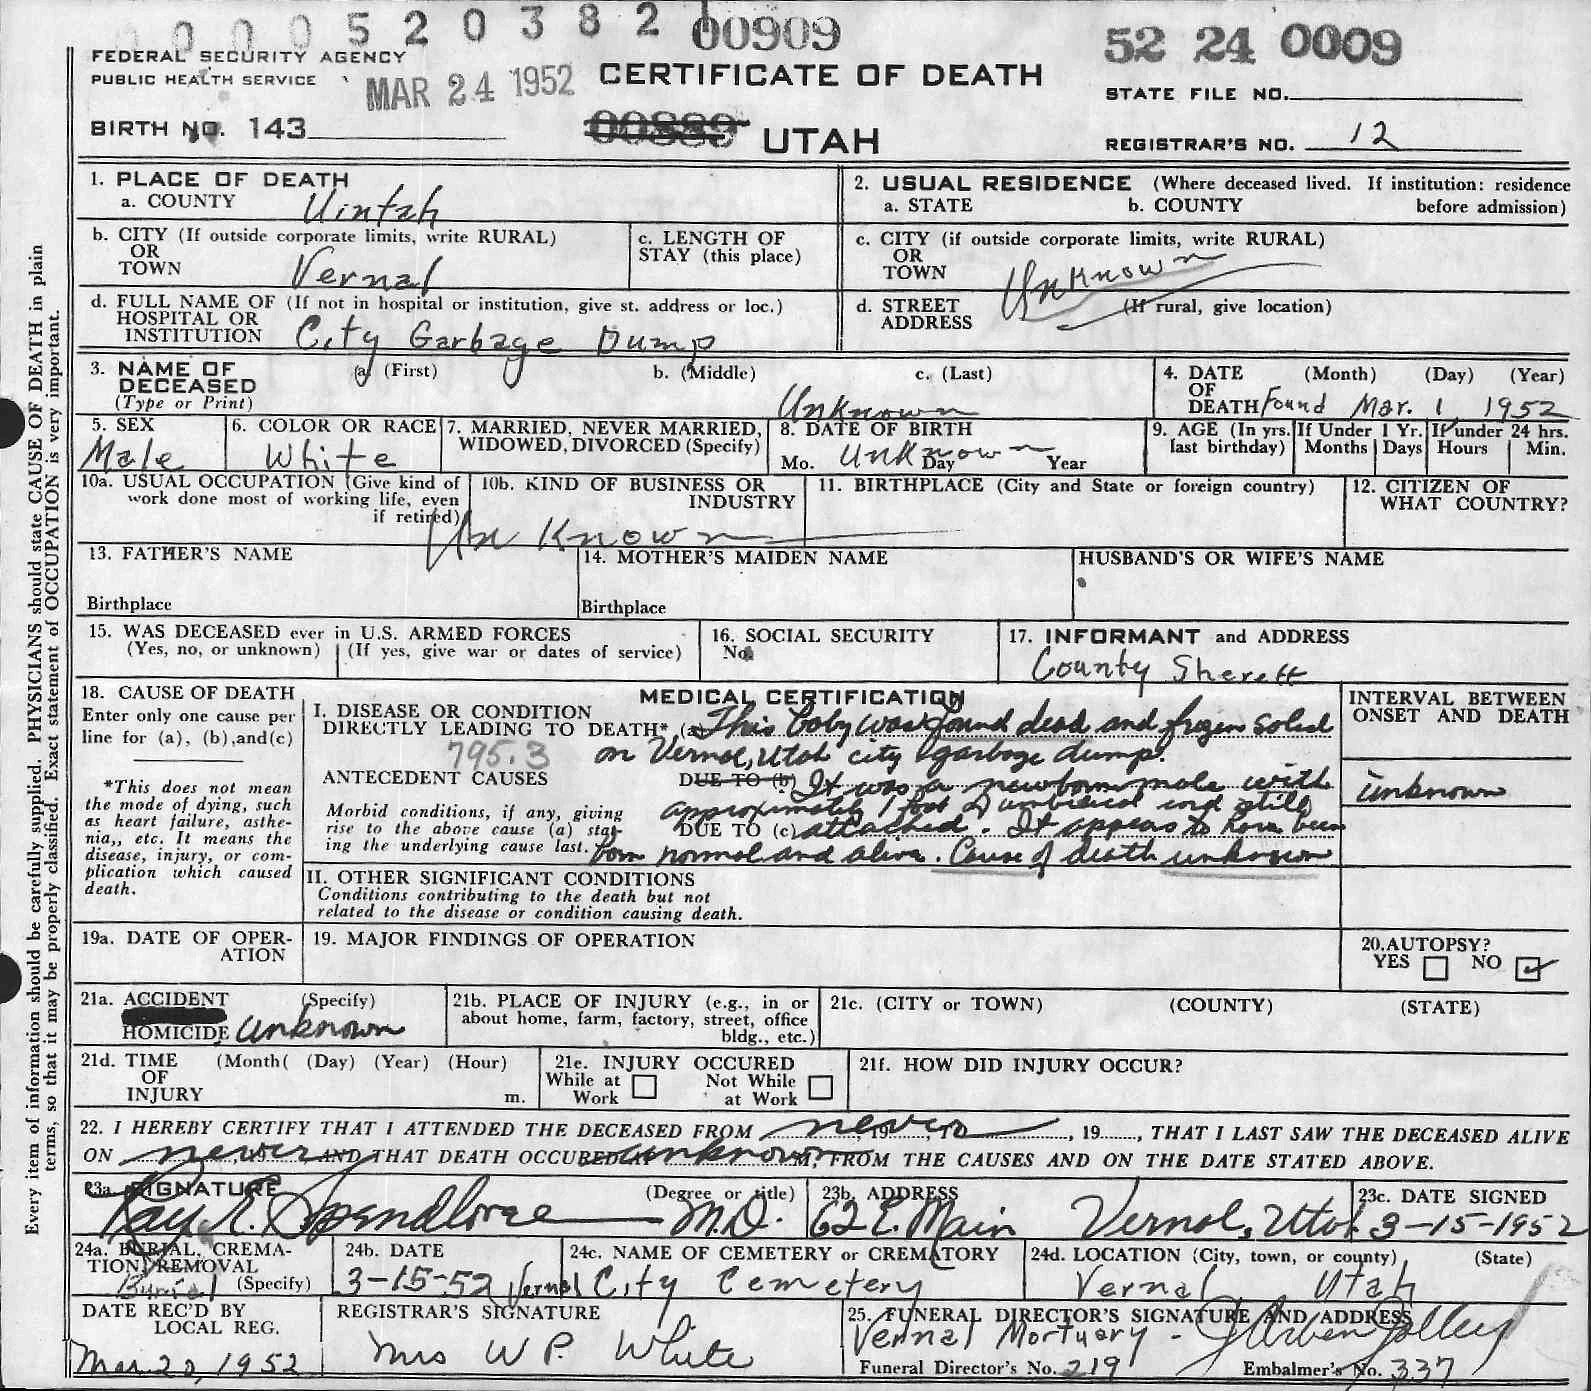 0000520382 00909
52 24 0009
FEDERAL SECURITY AGENCY
PUBLIC HEALTH SERVICE
MAR 24 1952
CERTIFICATE OF DEATH
STATE FILE NO.
BIRTH NO. 143
00889
UTAH
REGISTRAR'S NO. 12
Every item of information should be carefully supplied. PHYSICIANS should state CAUSE OF DEATH in plain
terms, so that it may be properly classified. Exact statement of OCCUPATION is very important.
1. PLACE OF DEATH
a. COUNTY Uintah
2. USUAL RESIDENCE (Where deceased lived. If institution: residence
a. STATE b. COUNTY before admission)
b. CITY (If outside corporate limits, write RURAL)
OR
TOWN Vernal
c. LENGTH OF
STAY (this place)
c. CITY (if outside corporate limits, write RURAL)
OR
TOWN Unknown
d. FULL NAME OF (If not in hospital or institution, give st. address or loc.)
HOSPITAL OR
INSTITUTION City Garbage Dump
d. STREET (If rural, give location)
ADDRESS
3. NAME OF (a) (First) b. (Middle) c. (Last)
DECEASED
(Type or Print) Unknown
4. DATE (Month) (Day) (Year)
OF
DEATH Found Mar. 1 1952
5. SEX
Male
6. COLOR OR RACE
White
7. MARRIED, NEVER MARRIED,
WIDOWED, DIVORCED (Specify)
8. DATE OF BIRTH
Mo. Unknown Day Year
9. AGE (In yrs. last birthday)
If Under 1 Yr. Months Days
If under 24 hrs. Hours Min.
10a. USUAL OCCUPATION (Give kind of
work done most of working life, even
if retired)
10b. KIND OF BUSINESS OR
INDUSTRY
Unknown
11. BIRTHPLACE (City and State or foreign country)
12. CITIZEN OF
WHAT COUNTRY?
13. FATHER'S NAME
Birthplace
14. MOTHER'S MAIDEN NAME
Birthplace
HUSBAND'S OR WIFE'S NAME
15. WAS DECEASED ever in U.S. ARMED FORCES
(Yes, no, or unknown) (If yes, give war or dates of service)
16. SOCIAL SECURITY
No.
17. INFORMANT and ADDRESS
County Shereff
18. CAUSE OF DEATH
Enter only one cause per
line for (a), (b),and(c)
*This does not mean
the mode of dying, such
as heart failure, asthe-
nia,, etc. It means the
disease, injury, or com-
plication which caused
death.
MEDICAL CERTIFICATION
I. DISEASE OR CONDITION
DIRECTLY LEADING TO DEATH* (a) This baby was found dead and frozen solid
795.3 on Vernal, Utah city garbage dump.
ANTECEDENT CAUSES DUE TO (b) It was a newborn male with
Morbid conditions, if any, giving approximately 1 foot of umbilical cord still
rise to the above cause (a) stat- DUE TO (c) attached. It appears to have been
ing the underlying cause last. born normal and alive. Cause of death unknown
INTERVAL BETWEEN
ONSET AND DEATH
unknown
II. OTHER SIGNIFICANT CONDITIONS
Conditions contributing to the death but not
related to the disease or condition causing death.
19a. DATE OF OPER-
ATION
19. MAJOR FINDINGS OF OPERATION
20.AUTOPSY?
YES NO ✓
21a. ACCIDENT (Specify)
HOMICIDE unknown
21b. PLACE OF INJURY (e.g., in or
about home, farm, factory, street, office
bldg., etc.)
21c. (CITY or TOWN) (COUNTY) (STATE)
21d. TIME (Month( (Day) (Year) (Hour)
OF
INJURY m.
21e. INJURY OCCURED
While at Work Not While at Work
21f. HOW DID INJURY OCCUR?
22. I HEREBY CERTIFY THAT I ATTENDED THE DECEASED FROM never, 19....., TO ............, 19......, THAT I LAST SAW THE DECEASED ALIVE
ON never AND THAT DEATH OCCURED AT unknown M, FROM THE CAUSES AND ON THE DATE STATED ABOVE.
23a. SIGNATURE (Degree or title)
Ray E. Spendlove M.D.
23b. ADDRESS
62 E. Main Vernal, Utah
23c. DATE SIGNED
3-15-1952
24a. BURIAL, CREMA-
TION, REMOVAL
Burial (Specify)
24b. DATE
3-15-52
24c. NAME OF CEMETERY or CREMATORY
Vernal City Cemetery
24d. LOCATION (City, town, or county) (State)
Vernal Utah
DATE REC'D BY
LOCAL REG.
Mar 20, 1952
REGISTRAR'S SIGNATURE
Mrs W P. White
25. FUNERAL DIRECTOR'S SIGNATURE AND ADDRESS
Vernal Mortuary -
Funeral Director's No. 219 Embalmer's No. 337